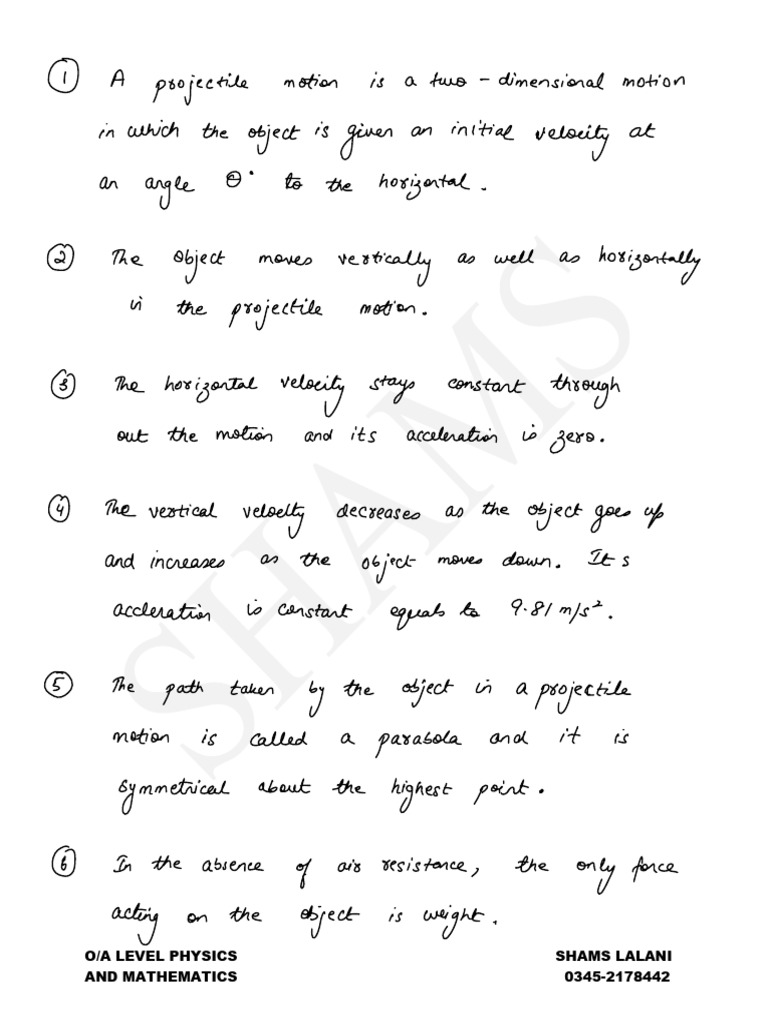 ① A projectile motion is a two - dimensional motion
in which the object is given an initial velocity at
an angle θ° to the horizontal.
② The object moves vertically as well as horizontally
in the projectile motion.
③ The horizontal velocity stays constant through
out the motion and its acceleration is zero.
④ The vertical velocity decreases as the object goes up
and increases as the object moves down. It s
accleration is constant equals to 9.81 m/s².
⑤ The path taken by the object in a projectile
motion is called a parabola and it is
symmetrical about the highest point.
⑥ In the absence of air resistance, the only force
acting on the object is weight.
SHAMS
O/A LEVEL PHYSICS SHAMS LALANI
AND MATHEMATICS 0345-2178442